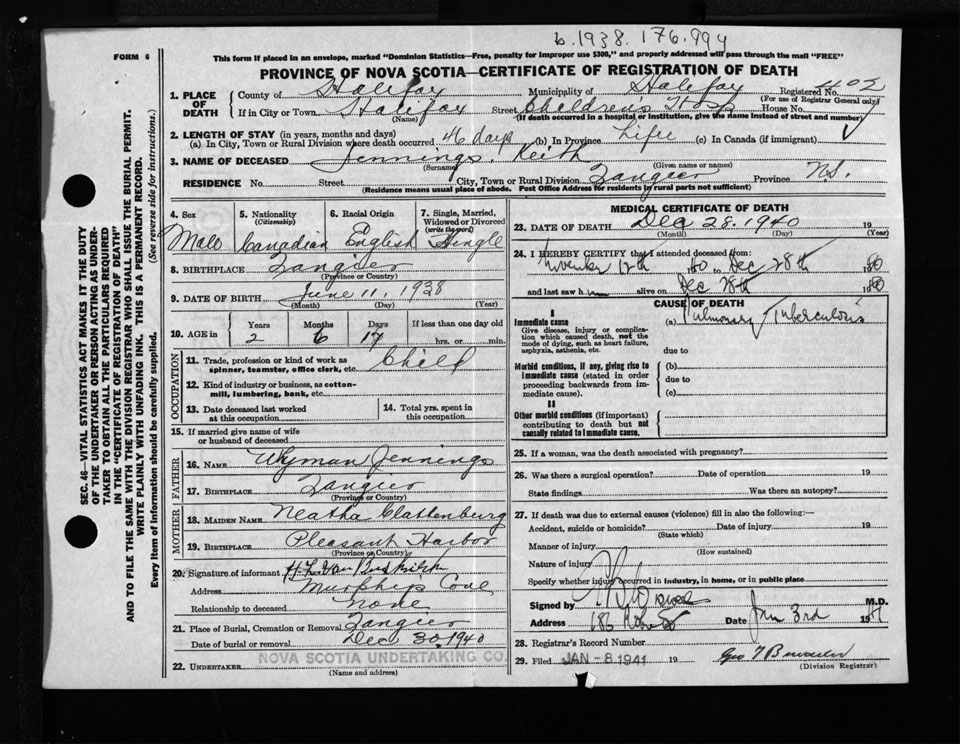 b. 1938. 176.994
FORM 6
This form if placed in an envelope, marked "Dominion Statistics—Free, penalty for improper use $300," and properly addressed will pass through the mail "FREE"
PROVINCE OF NOVA SCOTIA—CERTIFICATE OF REGISTRATION OF DEATH
1. PLACE OF DEATH
County of Halifax Municipality of Halifax Registered No.
(For use of Registrar General only)
If in City or Town Halifax Street Children's Hosp House No.
(Name) (If death occurred in a hospital or institution, give the name instead of street and number)
2. LENGTH OF STAY (in years, months and days)
(a) In City, Town or Rural Division where death occurred 46 days (b) In Province Life (c) In Canada (if immigrant)
3. NAME OF DECEASED Jennings, Keith
(Surname) (Given name or names)
RESIDENCE No. Street City, Town or Rural Division Tangier Province N.S.
(Residence means usual place of abode. Post Office Address for residents in rural parts not sufficient)
4. Sex Male
5. Nationality (Citizenship) Canadian
6. Racial Origin English
7. Single, Married, Widowed or Divorced (write the word) Single
8. BIRTHPLACE Tangier
(Province or Country)
9. DATE OF BIRTH June 11, 1938
(Month) (Day) (Year)
10. AGE in Years Months Days If less than one day old
2 6 17 hrs. or min.
OCCUPATION
11. Trade, profession or kind of work as spinner, teamster, office clerk, etc. Child
12. Kind of industry or business, as cotton-mill, lumbering, bank, etc.
13. Date deceased last worked at this occupation
14. Total yrs. spent in this occupation
15. If married give name of wife or husband of deceased
FATHER
16. NAME Wyman Jennings
17. BIRTHPLACE Tangier
(Province or Country)
MOTHER
18. MAIDEN NAME Neatha Clattenburg
19. BIRTHPLACE Pleasant Harbor
(Province or Country)
20. Signature of informant H. L. Van Buskirk
Address Murphys Cove
Relationship to deceased None
21. Place of Burial, Cremation or Removal Tangier
Date of burial or removal Dec 30, 1940
22. UNDERTAKER NOVA SCOTIA UNDERTAKING CO.
(Name and address)
MEDICAL CERTIFICATE OF DEATH
23. DATE OF DEATH Dec 28. 1940 19
(Month) (Day) (Year)
24. I HEREBY CERTIFY that I attended deceased from:
November 12th 1940 to Dec 28th 1940
and last saw him alive on Dec 28th 1940
CAUSE OF DEATH
I
Immediate cause (a) Pulmonary Tuberculosis
Give disease, injury or complication which caused death, not the mode of dying, such as heart failure, asphyxia, asthenia, etc.
due to
Morbid conditions, if any, giving rise to immediate cause (stated in order proceeding backwards from immediate cause)
(b)
due to
(c)
II
Other morbid conditions (if important) contributing to death but not causally related to immediate cause.
25. If a woman, was the death associated with pregnancy?
26. Was there a surgical operation? Date of operation 19
State findings Was there an autopsy?
27. If death was due to external causes (violence) fill in also the following:—
Accident, suicide or homicide? Date of injury 19
(State which)
Manner of injury
(How sustained)
Nature of injury
Specify whether injury occurred in industry, in home, or in public place
Signed by M.D.
Address 186 Date Jan 3rd 1941
28. Registrar's Record Number
29. Filed JAN -8 1941 19
(Division Registrar)
SEC. 46—VITAL STATISTICS ACT MAKES IT THE DUTY
OF THE UNDERTAKER OR PERSON ACTING AS UNDER-
TAKER TO OBTAIN ALL THE PARTICULARS REQUIRED
IN THE "CERTIFICATE OF REGISTRATION OF DEATH"
AND TO FILE THE SAME WITH THE DIVISION REGISTRAR WHO SHALL ISSUE THE BURIAL PERMIT.
WRITE PLAINLY WITH UNFADING INK. THIS IS A PERMANENT RECORD.
Every item of information should be carefully supplied. (See reverse side for instructions.)